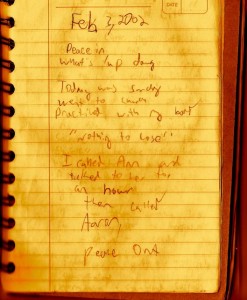 Feb 3, 2002
Peace in
What's up dawg
Today was sunday
went to
practiced with my
"nothing to lose"
I called Ann and
talked to her for
an hour
then called
Aaron,
peace Out
DATE